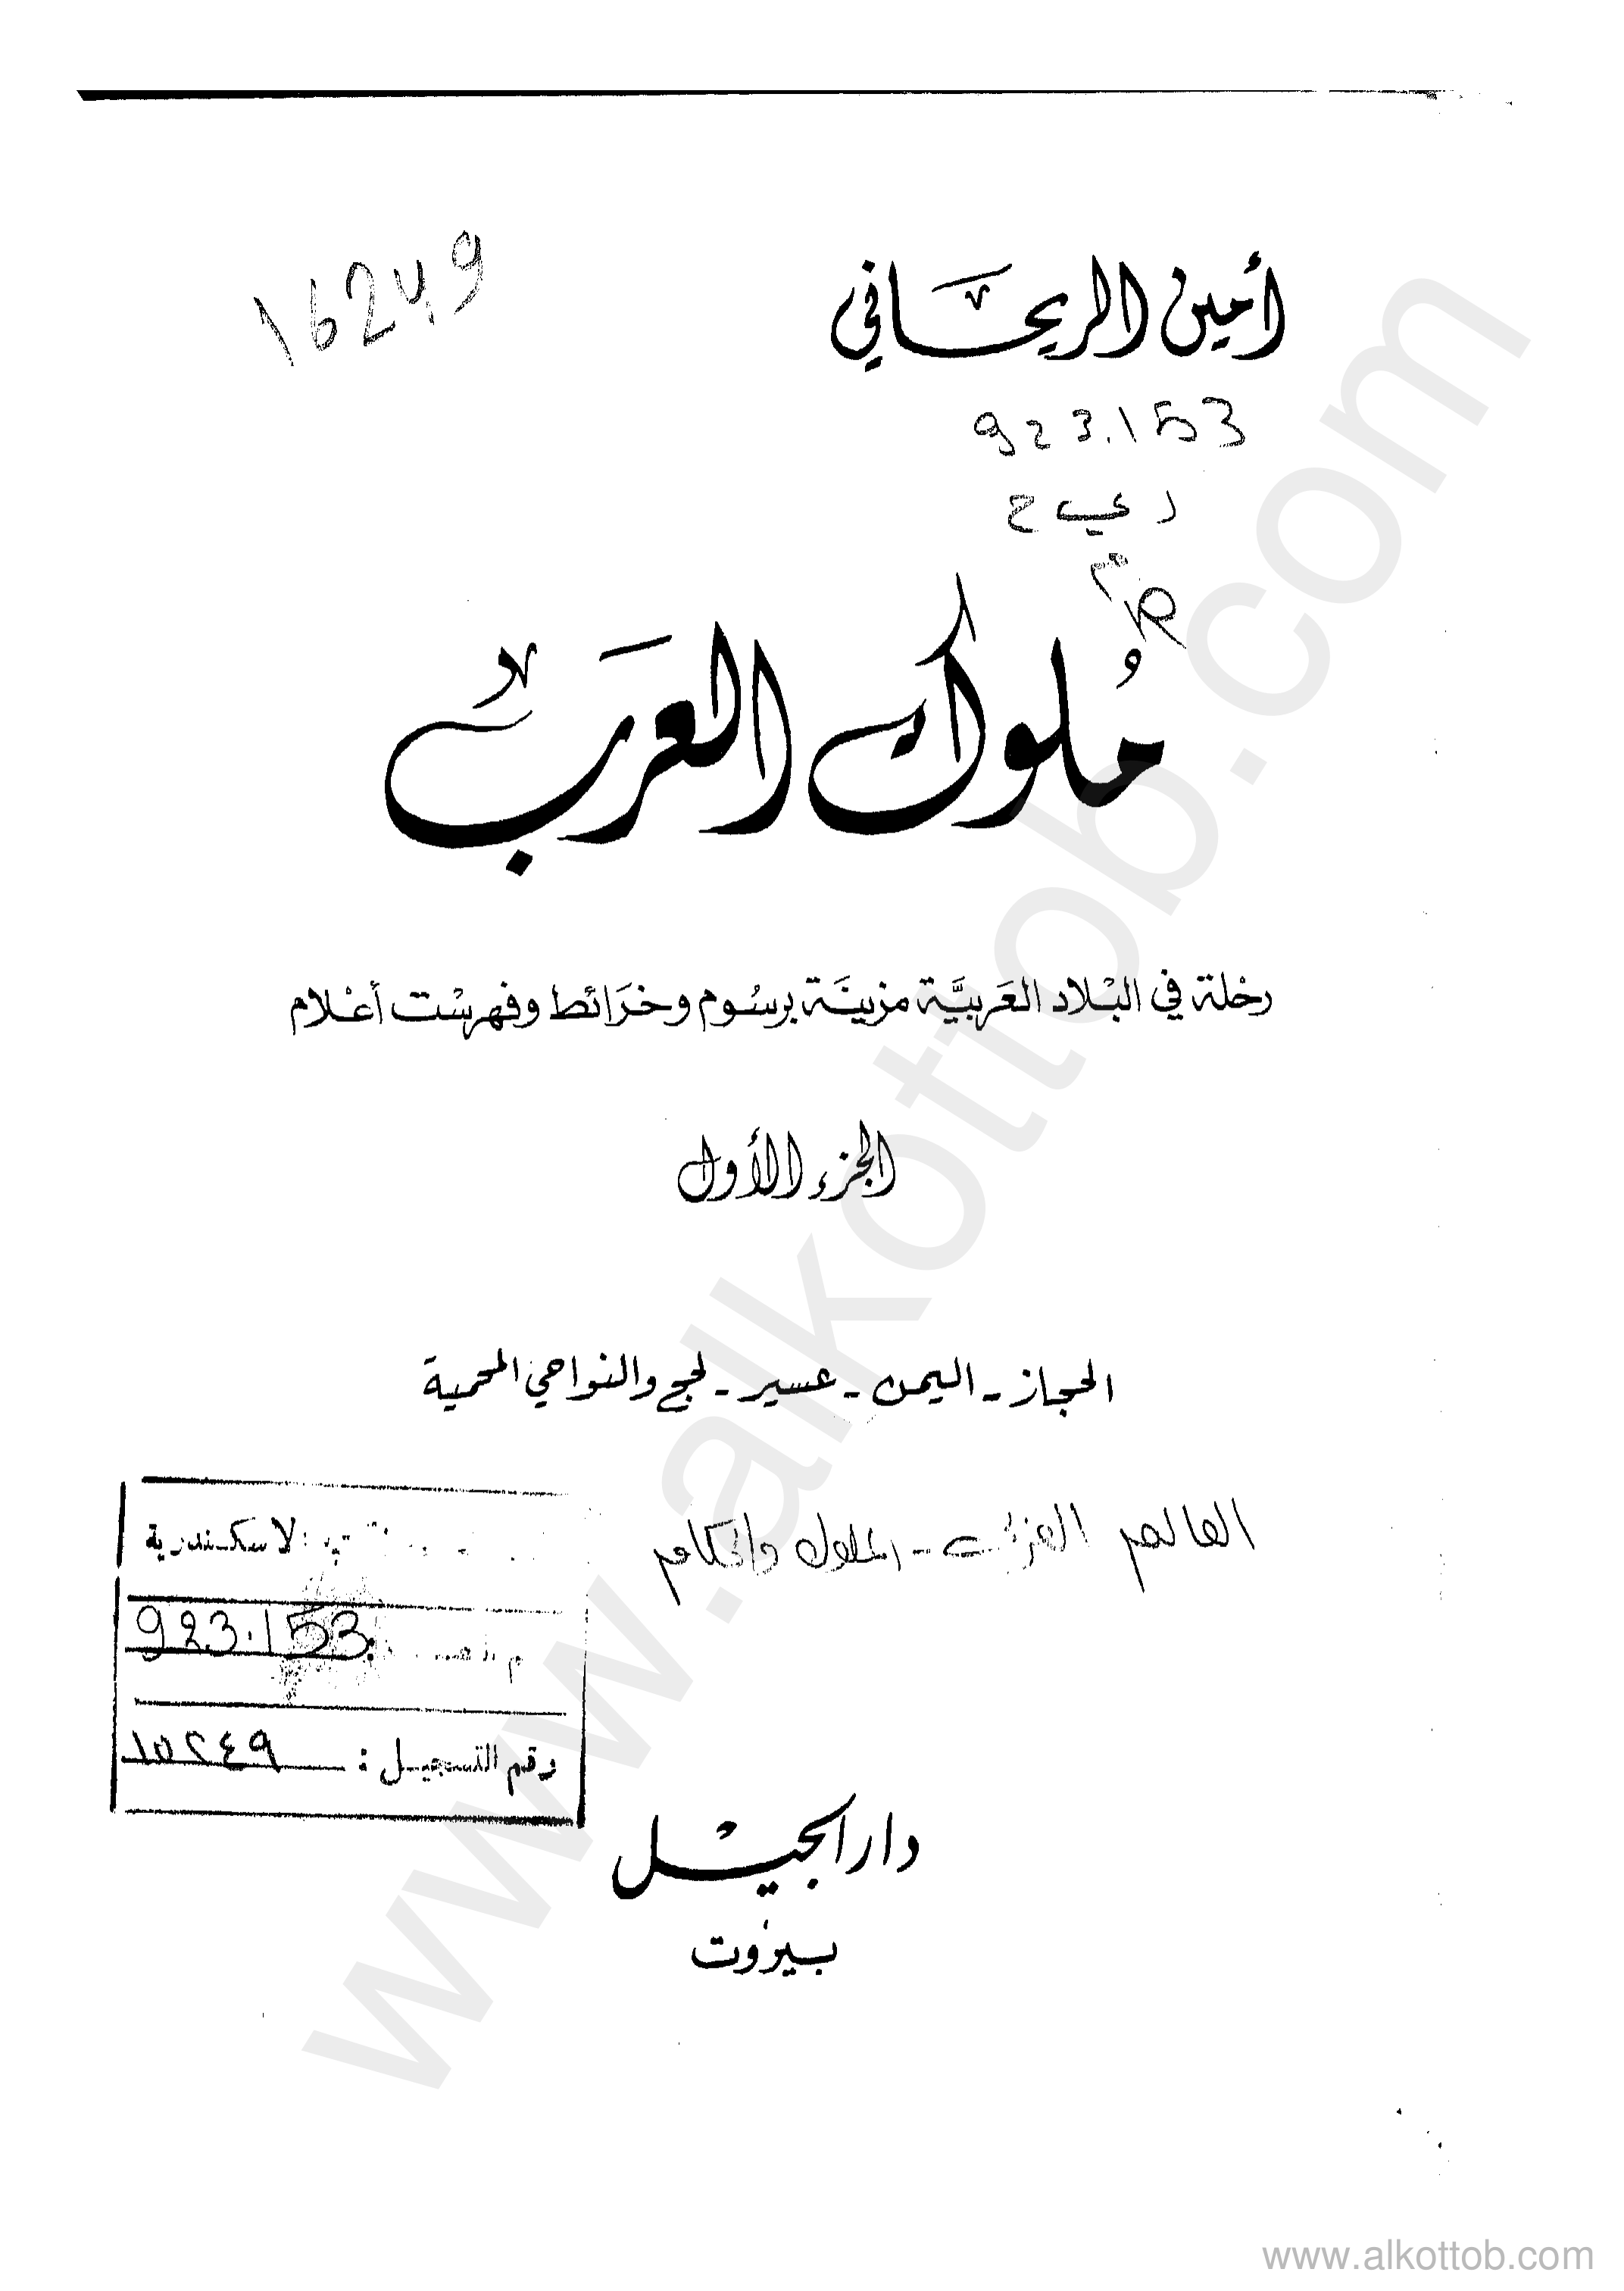 أمين الريحاني
16249
923.153
ر ي ح
م
مُلوك العَرَب
رحلة في البْلاد العَربيَّة مزينَة برسُوم وخرَائط وفهرسْت أعْلام
الجزء الأول
الحجاز - اليمن - عسير - لحج والنواحي المحمية
العالم العربي - الملوك والحكام
الاسكندرية
923.153
رقم التسجيل : ١٥٢٤٩
دار الجيل
بيروت
www.alkottob.com
www.alkottob.com